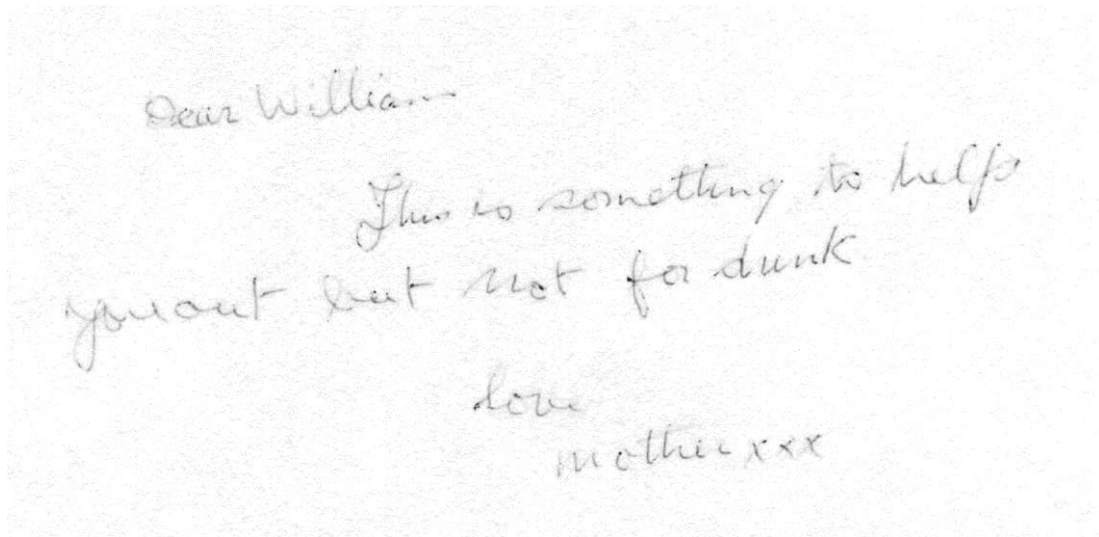 Dear William
This is something to help
you out but not for drink
love
mother xxx